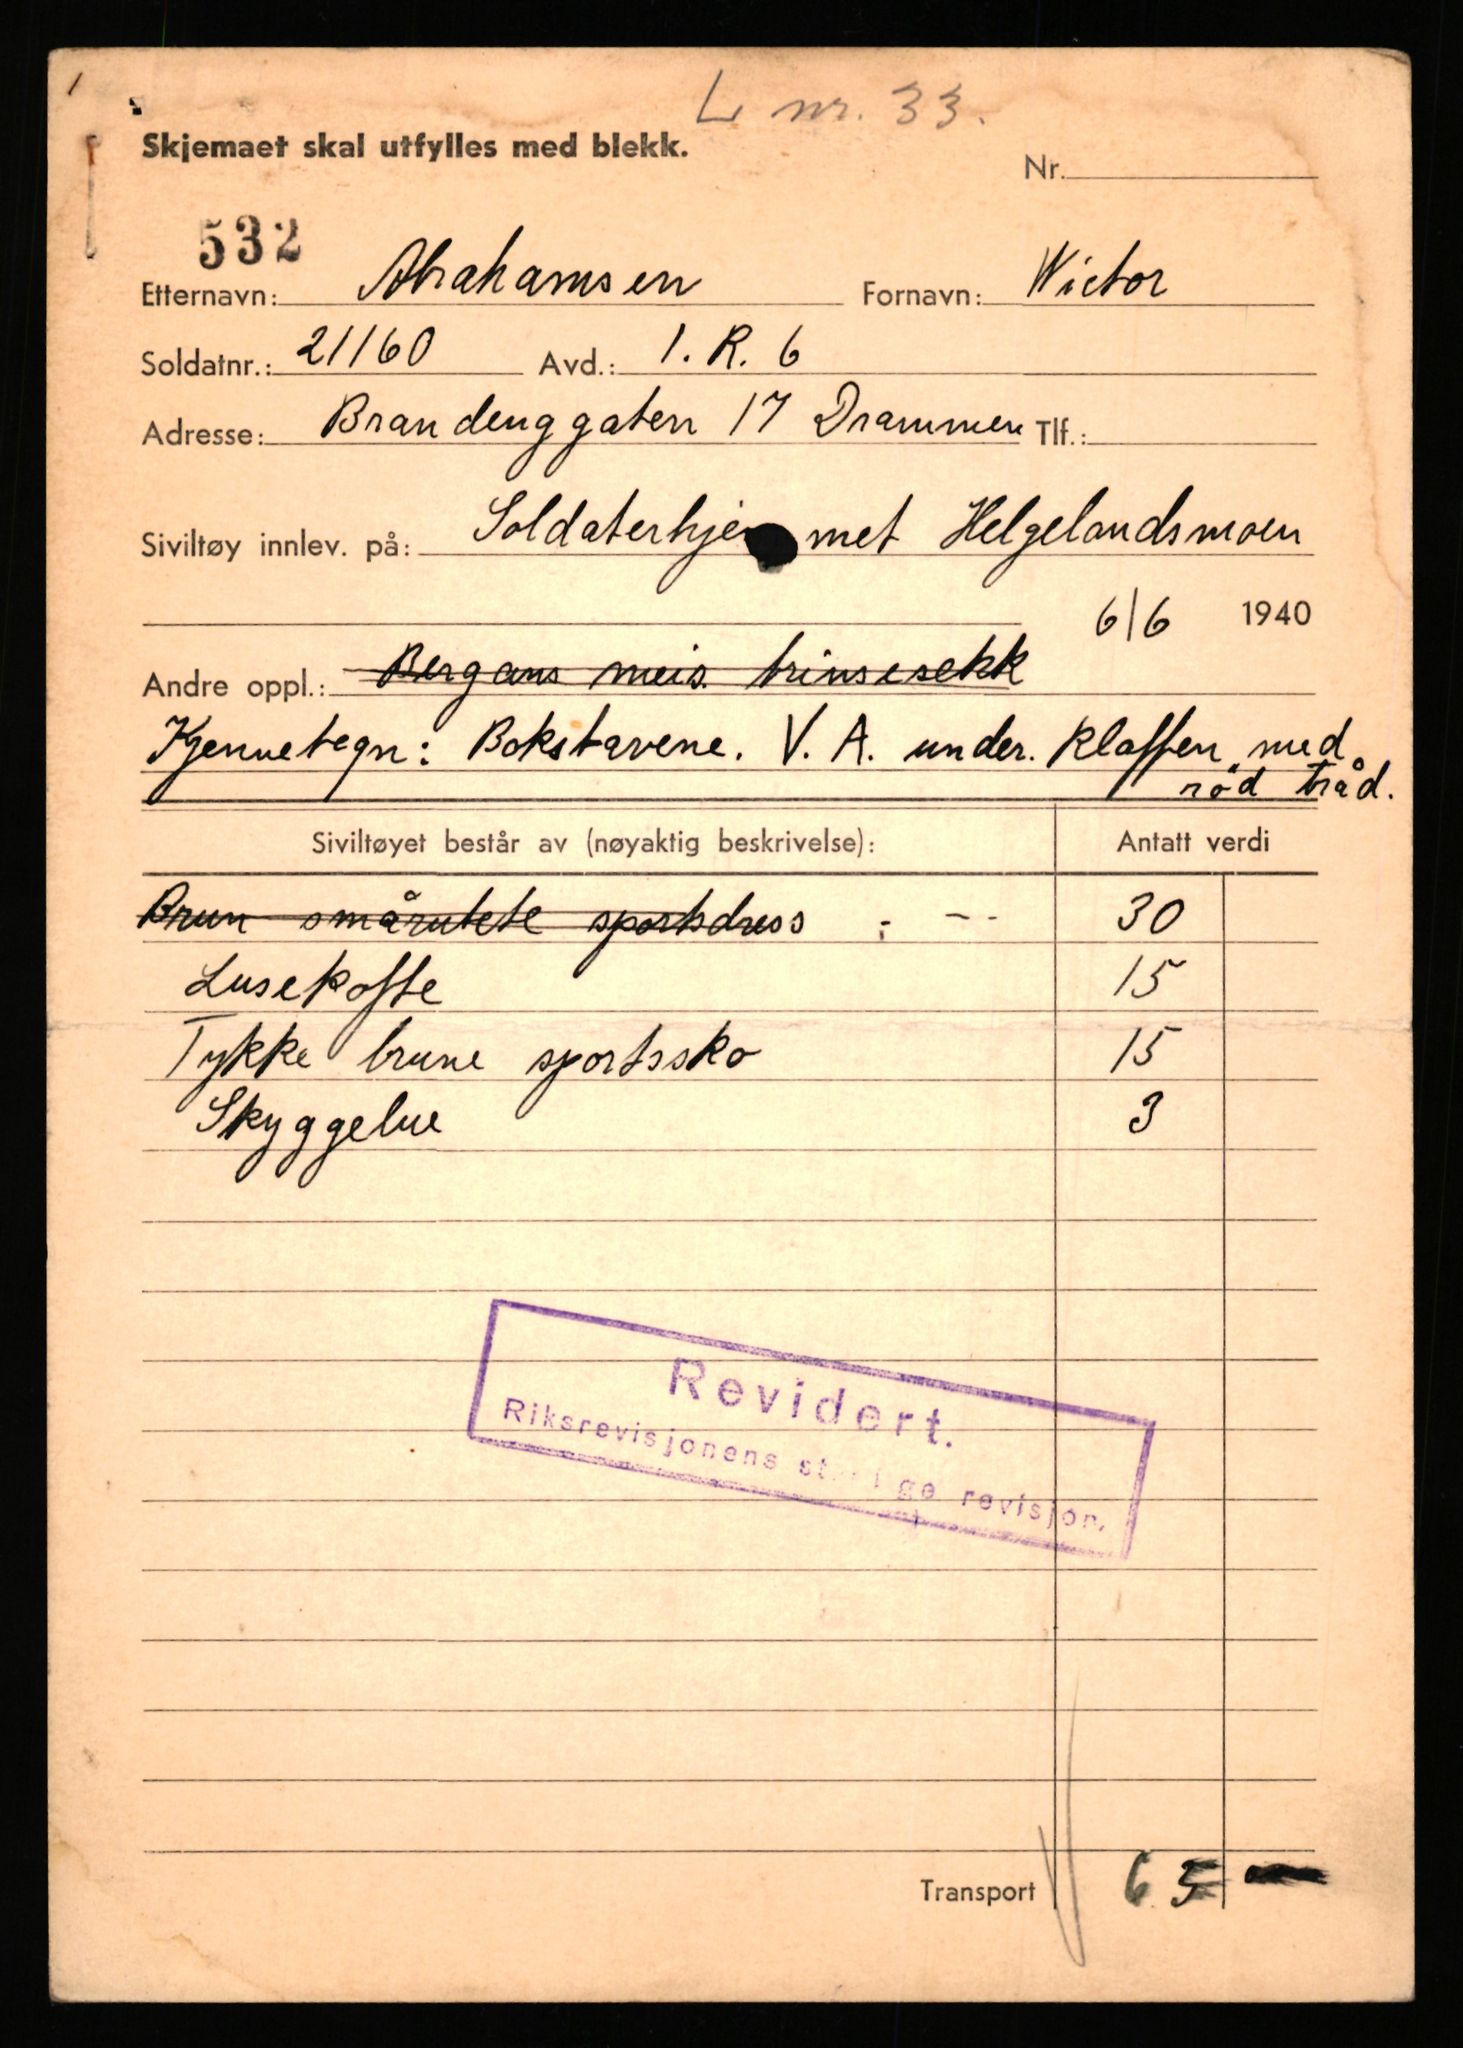 L nr. 33.
Skjemaet skal utfylles med blekk.
Nr.
532
Etternavn: Abrahamsen Fornavn: Wictor
Soldatnr.: 21160 Avd.: I. R. 6
Adresse: Brandenggaten 17 Drammen Tlf.:
Siviltøy innlev. på: Soldaterhjemmet Helgelandsmoen
6/6 1940
Andre oppl.: Bergans meis brinsesekk
Kjennetegn: Bokstavene. V. A. under. Klaffen med
rød tråd.
Siviltøyet består av (nøyaktig beskrivelse): Antatt verdi
Brun smårutete sportsdress 30
Lusekofte 15
Tykke brune sportssko 15
Skyggelue 3
Revidert.
Riksrevisjonens revisjon.
Transport 65